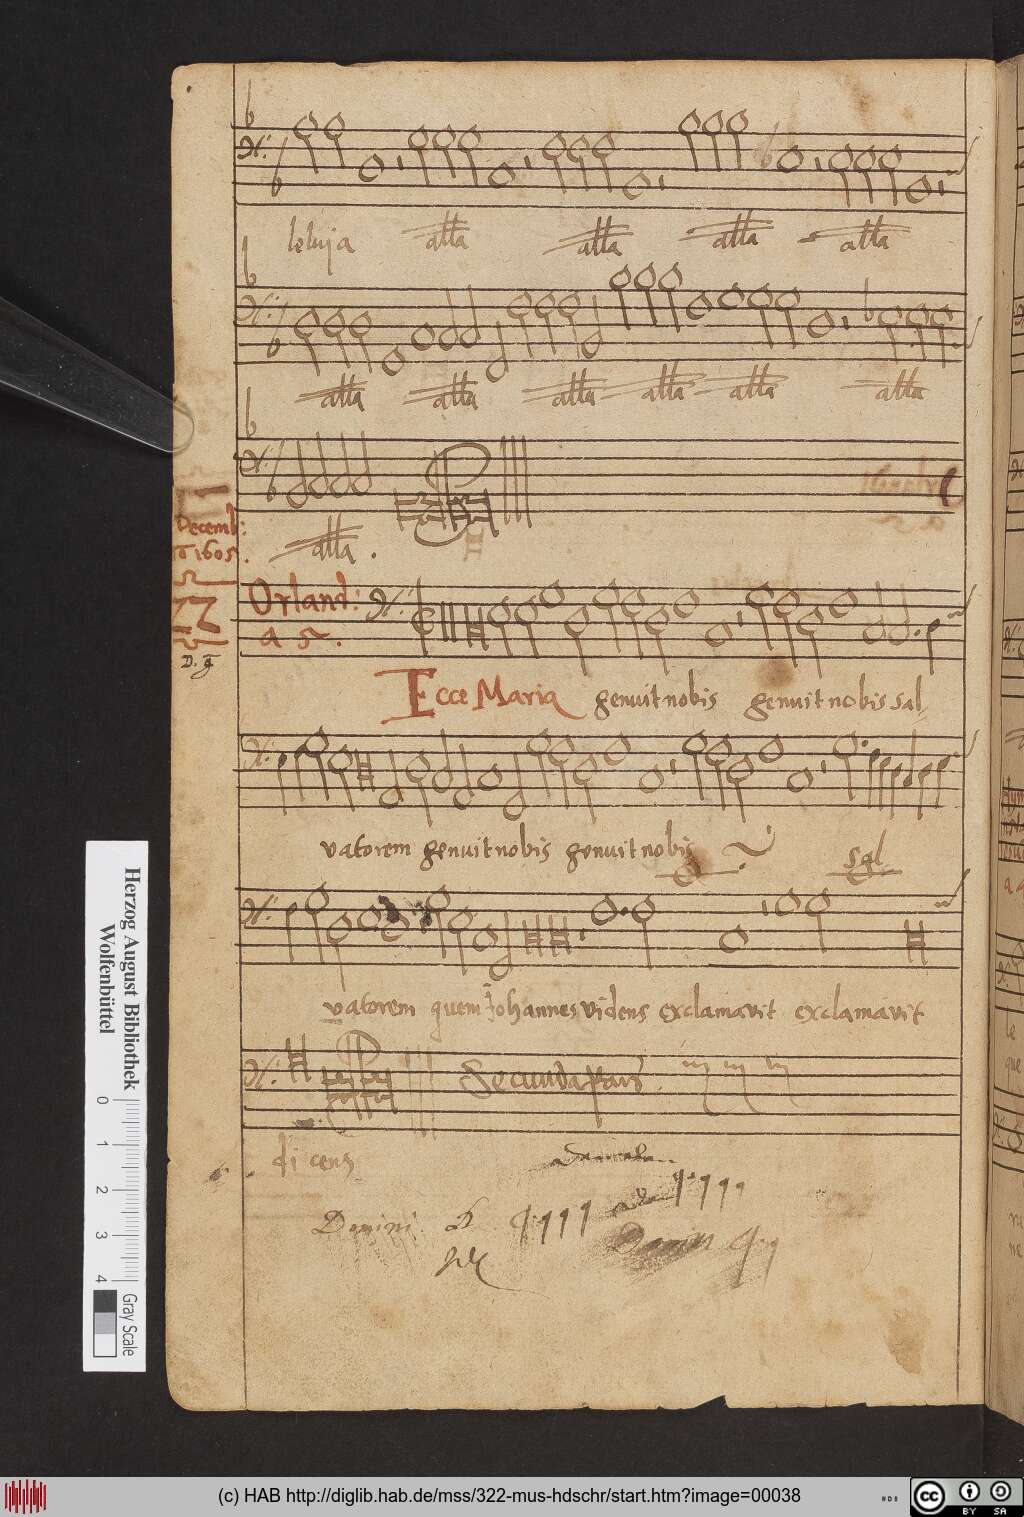 leluja alla alla alla alla
alla alla alla alla alla alla
alla.
Decemb:
1605.
Orland:
a 5.
D. g
Ecce Maria genuit nobis genuit nobis sal
vatorem genuit nobis genuit nobis sal
vatorem quem Johannes videns exclamavit exclamavit
Secunda Pars
di cens
Domini
Herzog August Bibliothek
Wolfenbüttel
0 1 2 3 4
Gray Scale
(c) HAB http://diglib.hab.de/mss/322-mus-hdschr/start.htm?image=00038
cc BY SA